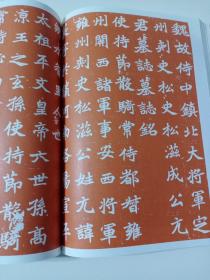 魏故侍中鎮北大將軍定
州刺史松滋成公元
君墓誌銘
使持節散騎常侍都督雍
州關西諸軍事安西將軍雍
州刺史松滋公姓元諱
宣平
太祖平文皇帝六世孫高
涼王之玄孫使持節散騎